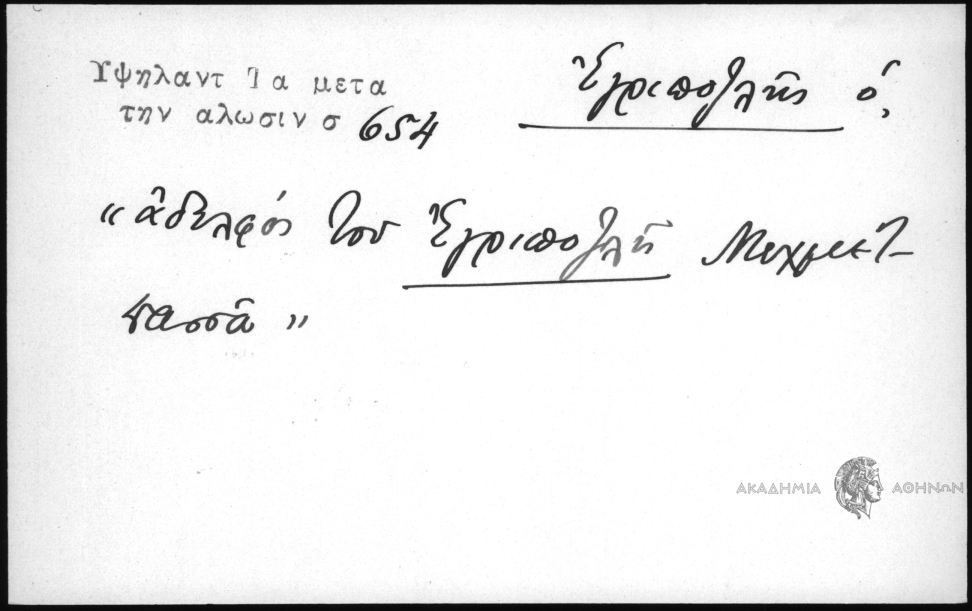 Ὑψηλαντ Τα μετα
την αλωσιν σ 654
Ἐγριποζλῆς ὁ,
“ἀδελφός τοῦ Ἐγριποζλῆ Μεχμέτ-
πασσᾶ”
ΑΚΑΔΗΜΙΑ ΑΘΗΝΩΝ